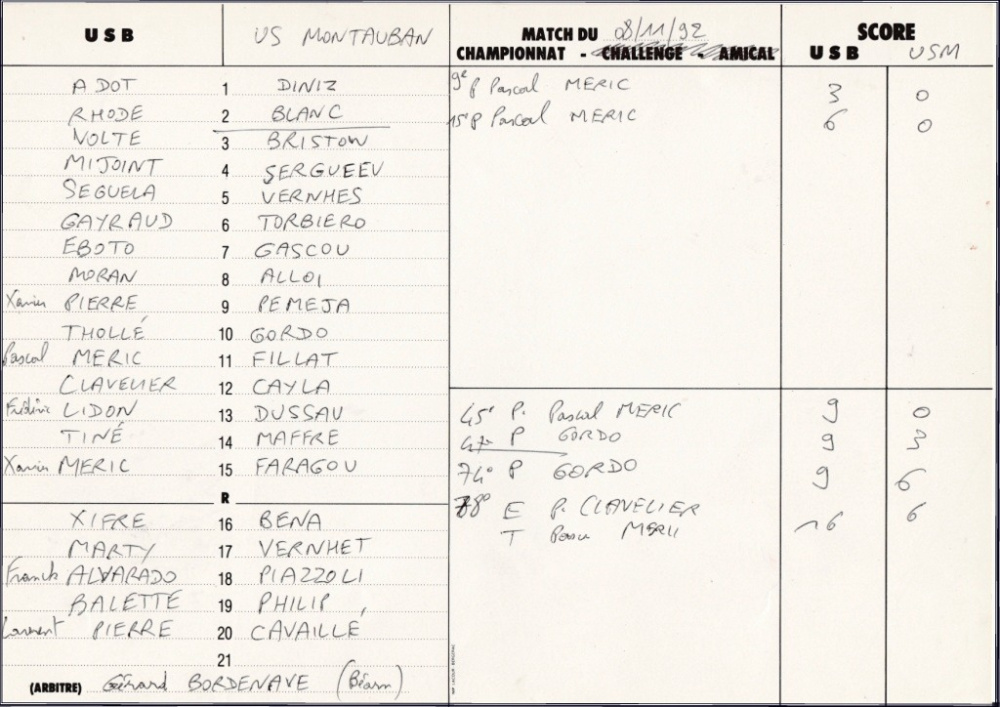 USB US MONTAUBAN MATCH DU 08/11/92 SCORE
CHAMPIONNAT - CHALLENGE - AMICAL USB USM
ADOT 1 DINIZ 9e p Pascal MERIC 3 0
RHODE 2 BLANC 15e p Pascal MERIC 6 0
VOLTE 3 BRISTOW
MIJOINT 4 SERGUEEV
SEGUELA 5 VERNHES
GAYRAUD 6 TORBIERO
EBOTO 7 GASCOU
MORAN 8 ALLOI
Xavier PIERRE 9 PEMEJA
THOLLÉ 10 GORDO
Pascal MERIC 11 FILLAT
CLAVELIER 12 CAYLA
Frédéric LIDON 13 DUSSAU 45e P. Pascal MERIC 9 0
TINÉ 14 MAFFRE 47e P GORDO 9 3
Xavier MERIC 15 FARAGOU 74e P GORDO 9 6
R
XIFRE 16 BENA 78e E P. CLAVELIER 16 6
MARTY 17 VERNHET T MERIC
Franck ALVARADO 18 PIAZZOLI
BALETTE 19 PHILIP
Laurent PIERRE 20 CAVAILLÉ
21
(ARBITRE) Gérard BORDENAVE (Béarn)